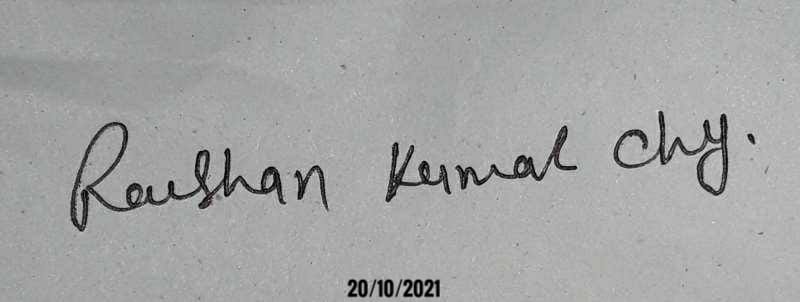 Raushan Kumar Chy.
20/10/2021